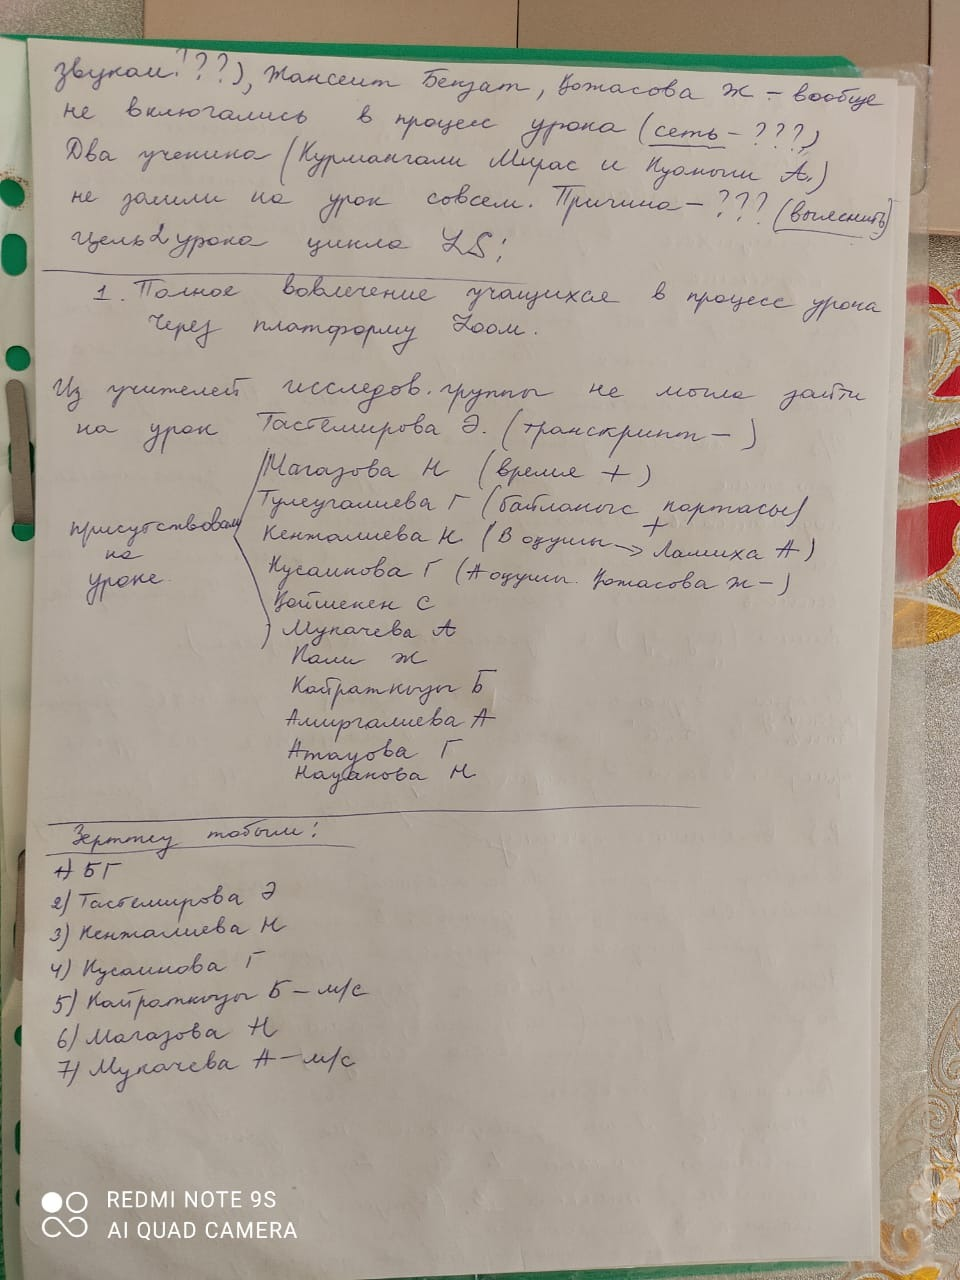 звукам!???), Жансеит Бекзат, Қожасова Ж – вообще
не включались в процесс урока (сеть – ???)
Два ученика (Курмангали Мирас и Куаныш А.)
не зашли на урок совсем. Причина – ??? (выяснить)
Цель 2 урока цикла LS:
1. Полное вовлечение учащихся в процесс урока
через платформу Zoom.
Из учителей исследов. группы не могла зайти
на урок Тастемирова Э. (транскрипт –)
присутствовали на уроке
Магазова Н (время +)
Тулеугалиева Г (байланыс картасы) +
Кенжалиева Н (В оқушы → Ламиха А)
Кусаинова Г (А оқушы. Қожасова Ж –)
Қойшекен С
Мукачева А
Кали Ж
Кайраткызы Б
Амиргалиева А
Атауова Г
Науанова Н
Зерттеу тобым:
1) БГ
2) Тастемирова Э
3) Кенжалиева Н
4) Кусаинова Г
5) Кайраткызы Б – м/с
6) Магазова Н
7) Мукачева А – м/с
REDMI NOTE 9S
AI QUAD CAMERA